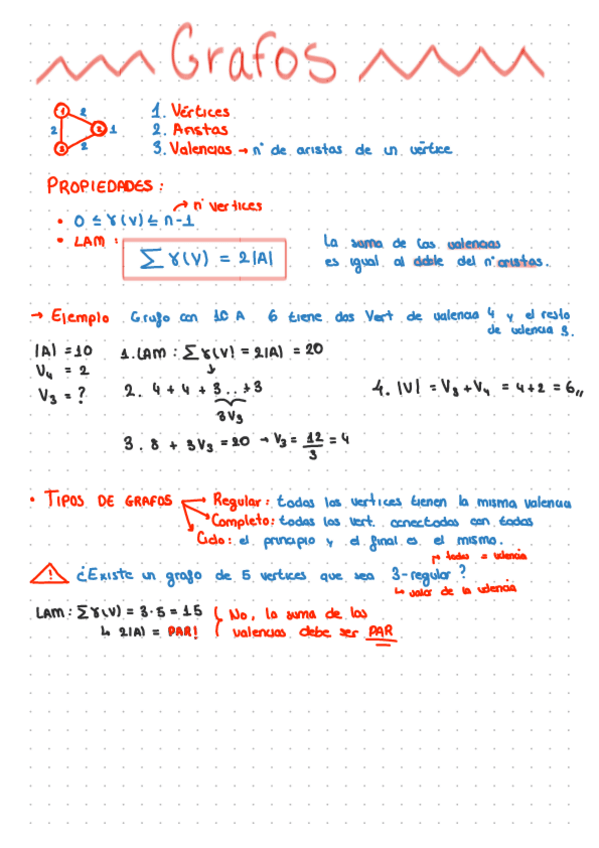 Grafos
1. Vértices
2. Aristas
3. Valencias → nº de aristas de un vértice
1 2 2 2 1 3 2
PROPIEDADES:
→ nº vertices
• 0 ≤ γ(v) ≤ n-1
• LAM:
∑ γ(v) = 2|A|
La suma de las valencias
es igual al doble del nº aristas.
→ Ejemplo Grafo con 10 A. G tiene dos Vert de valencia 4 y el resto
de valencia 3.
|A| = 10
V₄ = 2
V₃ = ?
1. LAM: ∑γ(v) = 2|A| = 20
2. 4 + 4 + 3...+3
3V₃
3. 8 + 3V₃ = 20 → V₃ = 12/3 = 4
4. |V| = V₃ + V₄ = 4+2 = 6,,
• TIPOS DE GRAFOS
Regular: todas los vertices tienen la misma valencia
Completo: todas los vert. conectados con todas
Ciclo: el principio y el final es el mismo.
↱ todas = valencia
⚠ ¿Existe un grafo de 5 vertices que sea 3-regular?
↳ valor de la valencia
LAM: ∑γ(v) = 3·5 = 15
↳ 2|A| = PAR!
No, la suma de las
valencias debe ser PAR